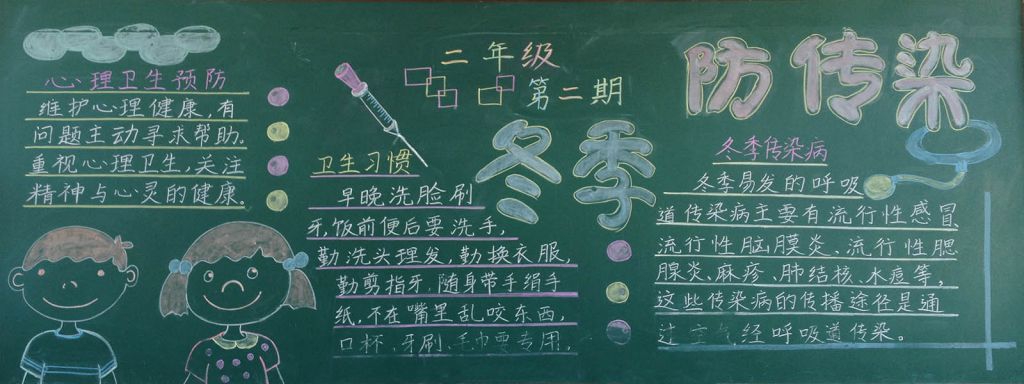 心理卫生预防
维护心理健康,有
问题主动寻求帮助。
重视心理卫生,关注
精神与心灵的健康。
二年级
第二期
冬季
防传染
卫生习惯
早晚洗脸刷
牙,饭前便后要洗手,
勤洗头理发,勤换衣服,
勤剪指牙,随身带手绢手
纸,不在嘴里乱咬东西,
口杯、牙刷、毛巾要专用,
冬季传染病
冬季易发的呼吸
道传染病主要有流行性感冒
流行性脑膜炎、流行性腮
腺炎、麻疹、肺结核、水痘等,
这些传染病的传播途径是通
过空气经呼吸道传染。